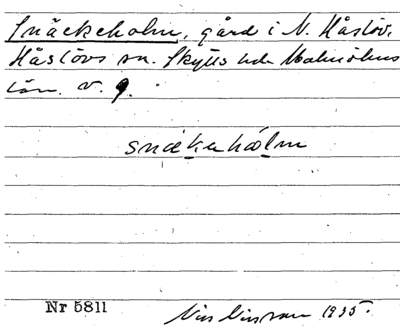 Snäckeholm, gård i N. Håslöv,
Håslövs sn. Skytts hd. Malmöhus
län. v. 9.
snäkehålm
Nr 5811
Nils Nilsson 1935.